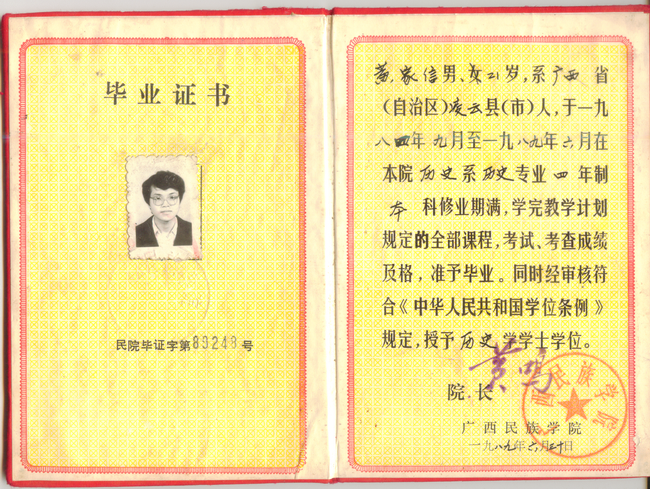 毕业证书
民院毕证字第89248号
黄家信男、女21岁，系广西省
（自治区）凌云县（市）人，于一九
八四年九月至一九八九年六月在
本院历史系历史专业四年制
本科修业期满，学完教学计划
规定的全部课程，考试、考查成绩
及格，准予毕业。同时经审核符
合《中华人民共和国学位条例》
规定，授予历史学学士学位。
院长 黄鸣
广西民族学院
广西民族学院
一九八九年六月三十日